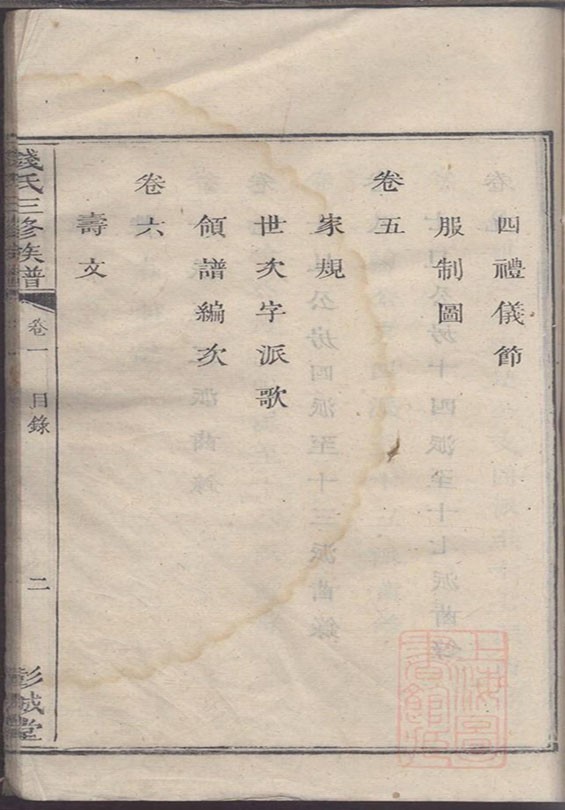 四禮儀節
服制圖
卷五
家規
世次字派歌
領譜編次
卷六
壽文
錢氏三修族譜
卷一
目錄
二
彭城堂
上海圖書館藏